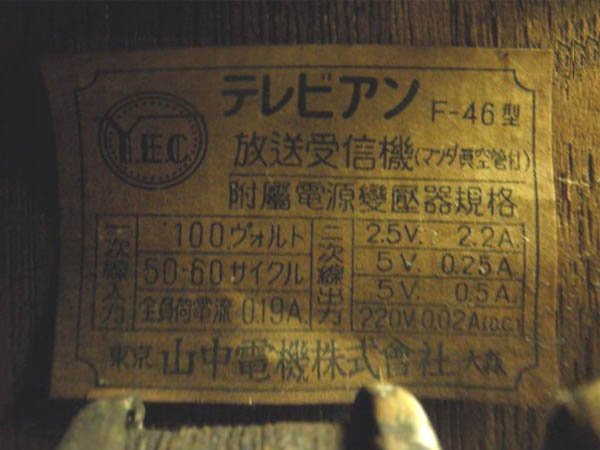 Y.E.C.
テレビアン F-46型
放送受信機(マツダ眞空管付)
附屬電源變壓器規格
一次線入力
100ヴォルト
50-60サイクル
全負荷電流 0.19A
二次線出力
2.5V. 2.2A.
5V. 0.25A.
5V. 0.5A.
220V. 0.02A(D.C.)
東京 山中電機株式會社 大森